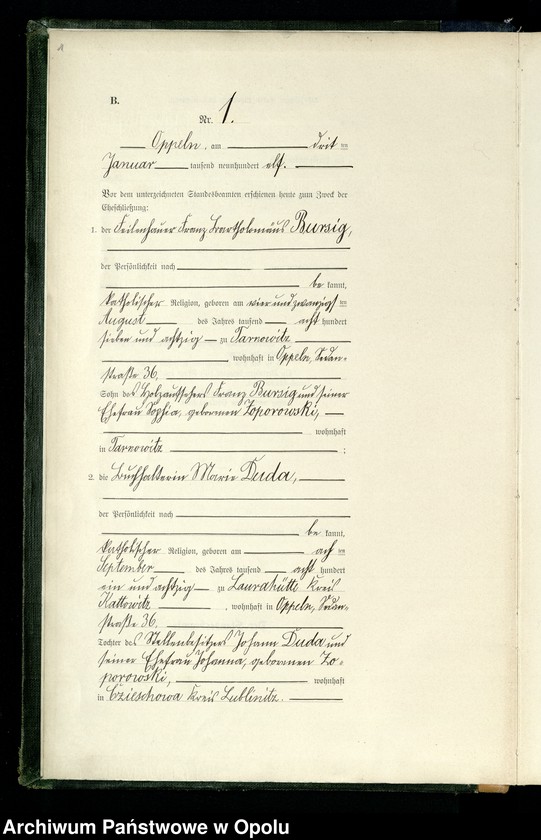 B.
Nr. 1.
Oppeln, am dritten
Januar tausend neunhundert elf.
Vor dem unterzeichneten Standesbeamten erschienen heute zum Zweck der
Eheschließung:
1. der Feilenhauer Franz Bartholomäus Bursig,
der Persönlichkeit nach
bekannt,
katholischer Religion, geboren am vierundzwanzigsten
August des Jahres tausend achthundert
sieben und achtzig zu Tarnowitz
, wohnhaft in Oppeln, Sedan-
straße 36.
Sohn des Holzaufsehers Franz Bursig und seiner
Ehefrau Sophia, geborenen Zoporowski,
wohnhaft
in Tarnowitz ;
2. die Buchhalterin Marie Duda,
der Persönlichkeit nach
bekannt,
katholischer Religion, geboren am achten
September des Jahres tausend achthundert
ein und achtzig zu Laurahütte Kreis
Kattowitz , wohnhaft in Oppeln, Sedan-
straße 36.
Tochter des Stellenbesitzers Johann Duda und
seiner Ehefrau Johanna, geborenen Zo-
porowski, wohnhaft
in Czieschowa Kreis Lublinitz.
Archiwum Państwowe w Opolu